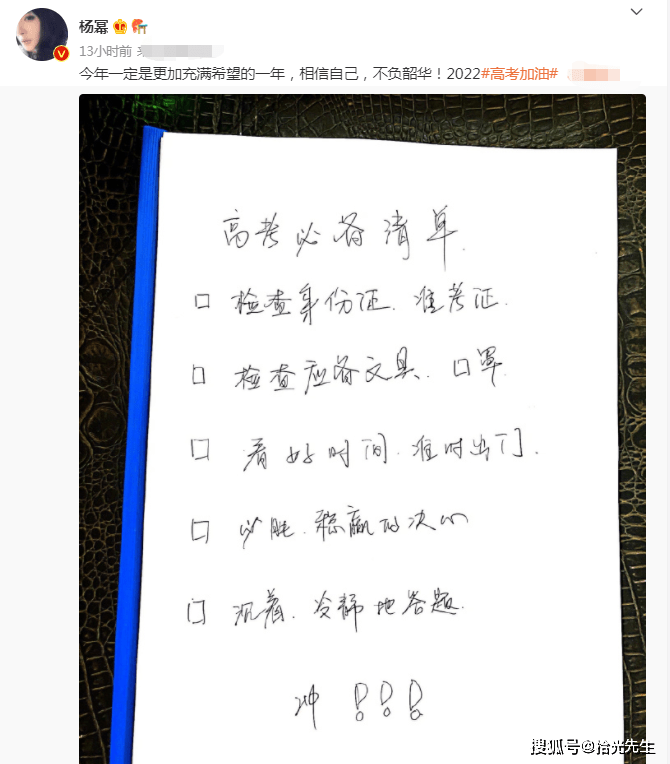 杨幂
13小时前 来
今年一定是更加充满希望的一年，相信自己，不负韶华！2022#高考加油#
高考必备清单.
□ 检查身份证、准考证.
□ 检查应备文具、口罩
□ 看好时间、准时出门.
□ 必胜、稳赢的决心
□ 沉着、冷静地答题.
冲！！！
搜狐号@拾光先生